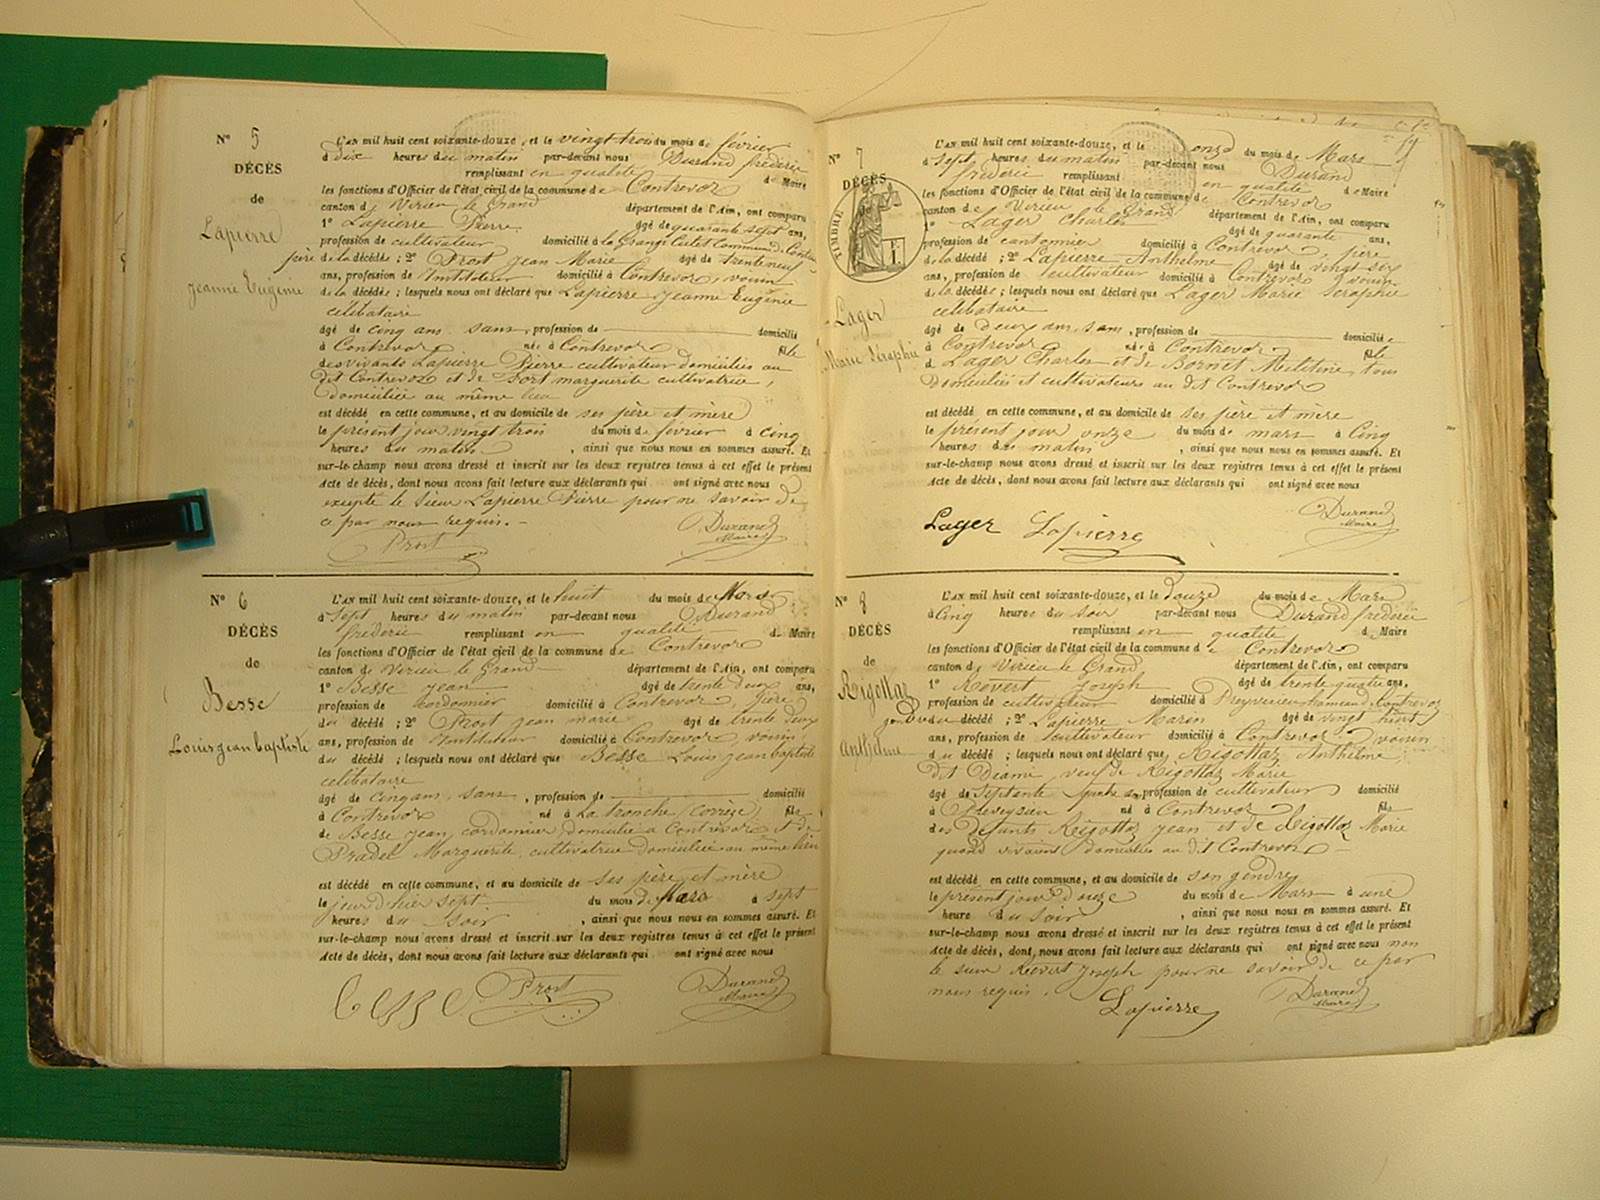 N° 5
DÉCÈS
de
Lapierre
Jeanne Eugénie
L'AN mil huit cent soixante-douze, et le vingt trois du mois de février
à Dix heures du matin par-devant nous Durand frédéric
remplissant en qualité de Maire
les fonctions d'Officier de l'état civil de la commune de Contrevoz
canton de Virieu le Grand département de l'Ain, ont comparu
1° Lapierre Pierre âgé de quarante sept ans,
profession de cultivateur domicilié à la Grange
père de la décédée ; 2° Prost Jean Marie âgé de trente neuf
ans, profession d'Instituteur domicilié à Contrevoz, voisin
de la décédée ; lesquels nous ont déclaré que Lapierre Jeanne Eugénie
célibataire
âgé de cinq ans sans, profession de domicilié
à Contrevoz née à Contrevoz fille
des vivants Lapierre Pierre cultivateur domicilié au
dit Contrevoz et de marguerite cultivatrice,
domiciliée au même lieu
est décédé en cette commune, et au domicile de ses père et mère
le présent jour vingt trois du mois de février à cinq
heures du matin, ainsi que nous nous en sommes assuré. Et
sur-le-champ nous avons dressé et inscrit sur les deux registres tenus à cet effet le présent
Acte de décès, dont nous avons fait lecture aux déclarants qui ont signé avec nous
excepté le sieur Lapierre Pierre pour ne savoir de
ce par nous requis.-
Prost Durand
Maire
N° 6
DÉCÈS
de
Besse
Louis jean baptiste
L'AN mil huit cent soixante-douze, et le huit du mois de Mars
à Sept heures du matin par-devant nous Durand
frédéric remplissant en qualité de Maire
les fonctions d'Officier de l'état civil de la commune de Contrevoz
canton de Virieu le Grand département de l'Ain, ont comparu
1° Besse Jean âgé de trente deux ans,
profession de Cordonnier domicilié à Contrevoz, père
du décédé ; 2° Prost jean marie âgé de trente deux
ans, profession d'Instituteur domicilié à Contrevoz voisin
du décédé ; lesquels nous ont déclaré que Besse Louis jean baptiste
célibataire
âgé de Cinq ans sans, profession de domicilié
à Contrevoz né à La tronche (Corrèze) fils
de Besse Jean, cordonnier domicilié à Contrevoz et de
Pradel Marguerite, cultivatrice domiciliée au même lieu
est décédé en cette commune, et au domicile de ses père et mère
le jour d'hier sept. du mois de Mars à sept
heures du soir, ainsi que nous nous en sommes assuré. Et
sur-le-champ nous avons dressé et inscrit sur les deux registres tenus à cet effet le présent
Acte de décès, dont nous avons fait lecture aux déclarants qui ont signé avec nous
Besse Prost Durand
Maire
N° 7
DÉCÈS
TIMBRE
Lager
Marie Séraphie
L'AN mil huit cent soixante-douze, et le onze du mois de Mars
à Sept heures du matin par-devant nous Durand
frédéric remplissant en qualité de Maire
les fonctions d'Officier de l'état civil de la commune de Contrevoz
canton de Virieu le Grand département de l'Ain, ont comparu
1° Lager Charles âgé de quarante ans,
profession de cantonnier domicilié à Contrevoz, père
de la décédée ; 2° Lapierre Anthelme âgé de vingt six
ans, profession de cultivateur domicilié à Contrevoz voisin
de la décédée ; lesquels nous ont déclaré que Lager Marie Séraphie
célibataire
âgé de deux ans, sans, profession de domicilié
à Contrevoz née à Contrevoz fille
d Lager Charles et de Bornet Melitine, tous
Domiciliés et cultivateurs au dit Contrevoz
est décédé en cette commune, et au domicile de ses père et mère
le présent jour onze du mois de mars à Cinq
heures du matin, ainsi que nous nous en sommes assuré. Et
sur-le-champ nous avons dressé et inscrit sur les deux registres tenus à cet effet le présent
Acte de décès, dont nous avons fait lecture aux déclarants qui ont signé avec nous
Lager Lapierre Durand
Maire
N° 8
DÉCÈS
de
Rigottaz
Anthelme
L'AN mil huit cent soixante-douze, et le Douze du mois de Mars
à Cinq heures du soir par-devant nous Durand frédéric
remplissant en qualité de Maire
les fonctions d'Officier de l'état civil de la commune de Contrevoz
canton de Virieu le Grand département de l'Ain, ont comparu
1° Revert Joseph âgé de trente quatre ans,
profession de cultivateur domicilié à Preyveisieu hameau de Contrevoz
gendre du décédé ; 2° Lapierre Marin âgé de vingt huit
ans, profession de cultivateur domicilié à Contrevoz voisin
du décédé ; lesquels nous ont déclaré que Rigottaz Anthelme
Dit Diamé, veuf de Rigottaz Marie
âgé de Septante profession de cultivateur domicilié
à Preveysieu né à Contrevoz fils
des Defunts Rigottaz Jean et de Rigottaz Marie
quand vivaient domiciliés au dit Contrevoz
est décédé en cette commune, et au domicile de son gendre
le présent jour douze du mois de Mars à une
heure du soir, ainsi que nous nous en sommes assuré. Et
sur-le-champ nous avons dressé et inscrit sur les deux registres tenus à cet effet le présent
Acte de décès, dont nous avons fait lecture aux déclarants qui ont signé avec nous non
le sieur Revert Joseph pour ne savoir de ce par
nous requis.
Lapierre Durand
Maire